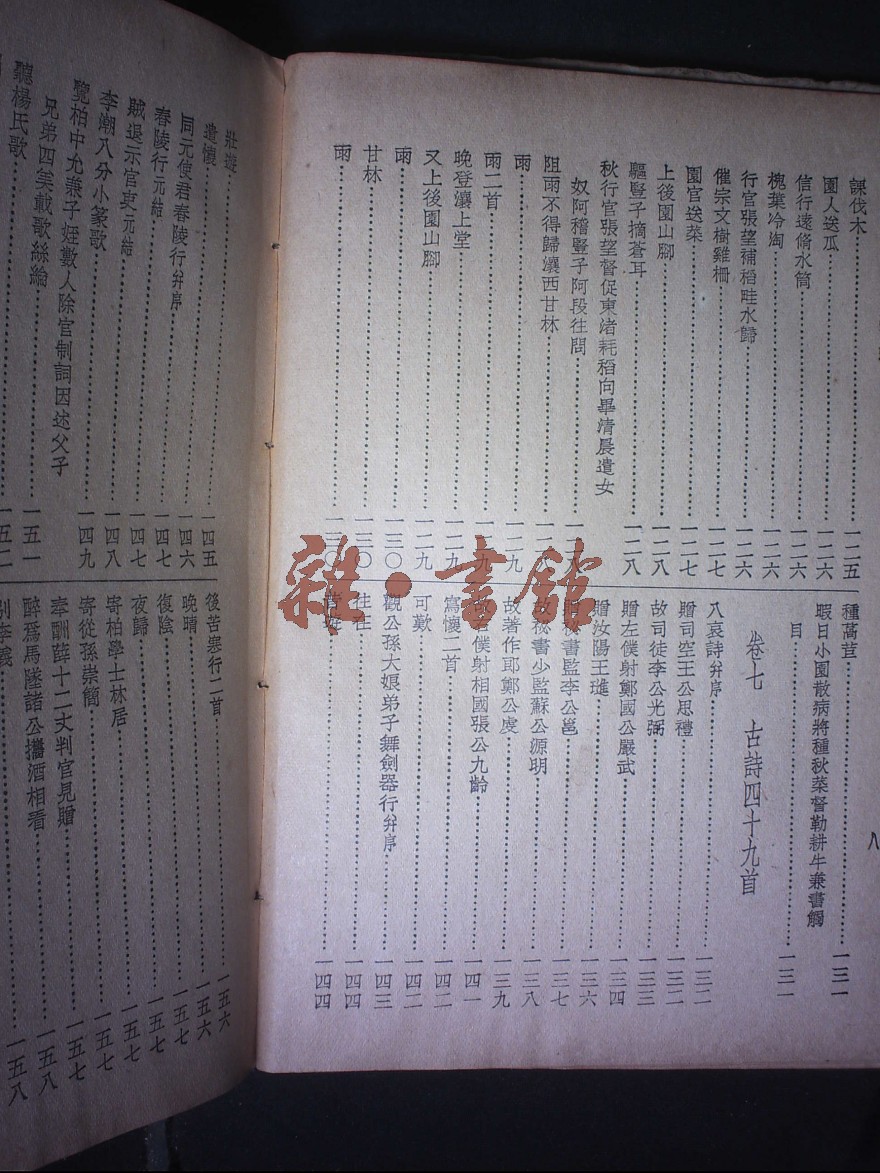 課伐木……一二五
園人送瓜……一二六
信行遠脩水筒……一二六
槐葉冷淘……一二六
行官張望補稻畦水歸……一二六
催宗文樹雞柵……一二七
園官送菜……一二七
上後園山腳……一二八
驅豎子摘蒼耳……一二八
秋行官張望督促東渚耗稻向畢清晨遣女
奴阿稽豎子阿段往問
阻雨不得歸瀼西甘林
雨……一二九
雨二首
晚登瀼上堂……一二九
又上後園山腳……一二九
雨……一三〇
甘林……一三〇
雨
種萵苣……一三一
暇日小園散病將種秋菜督勒耕牛兼書觸
目……一三一
卷七 古詩四十九首
八哀詩并序……一三二
贈司空王公思禮……一三二
故司徒李公光弼……一三三
贈左僕射鄭國公嚴武……一三四
贈汝陽王璡……一三六
祕書監李公邕……一三七
祕書少監蘇公源明……一三八
故著作郎鄭公虔……一三九
右僕射相國張公九齡……一四一
寫懷二首……一四二
可歎……一四二
觀公孫大娘弟子舞劍器行并序……一四三
往在……一四四
一四四
八
壯遊……一四五
遣懷……一四六
同元使君舂陵行并序……一四六
舂陵行元結……一四七
賊退示官吏元結……一四七
李潮八分小篆歌……一四八
覽柏中允兼子姪數人除官制詞因述父子……一四九
兄弟四美載歌絲綸……一五一
聽楊氏歌……一五二
後苦寒行二首……一五六
晚晴……一五六
復陰……一五七
夜歸……一五七
寄柏學士林居……一五七
寄從孫崇簡……一五七
奉酬薛十二丈判官見贈……一五七
醉爲馬墜諸公攜酒相看……一五八
別李義……一五八
雜·書館